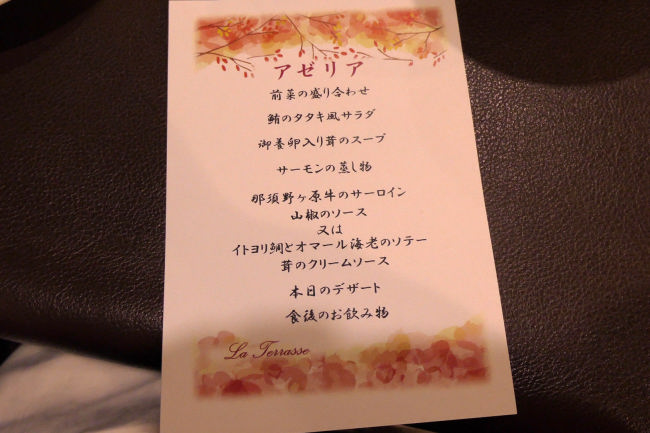 アゼリア
前菜の盛り合わせ
鮪のタタキ風サラダ
御養卵入り茸のスープ
サーモンの蒸し物
那須野ヶ原牛のサーロイン
山椒のソース
又は
イトヨリ鯛とオマール海老のソテー
茸のクリームソース
本日のデザート
食後のお飲み物
La Terrasse